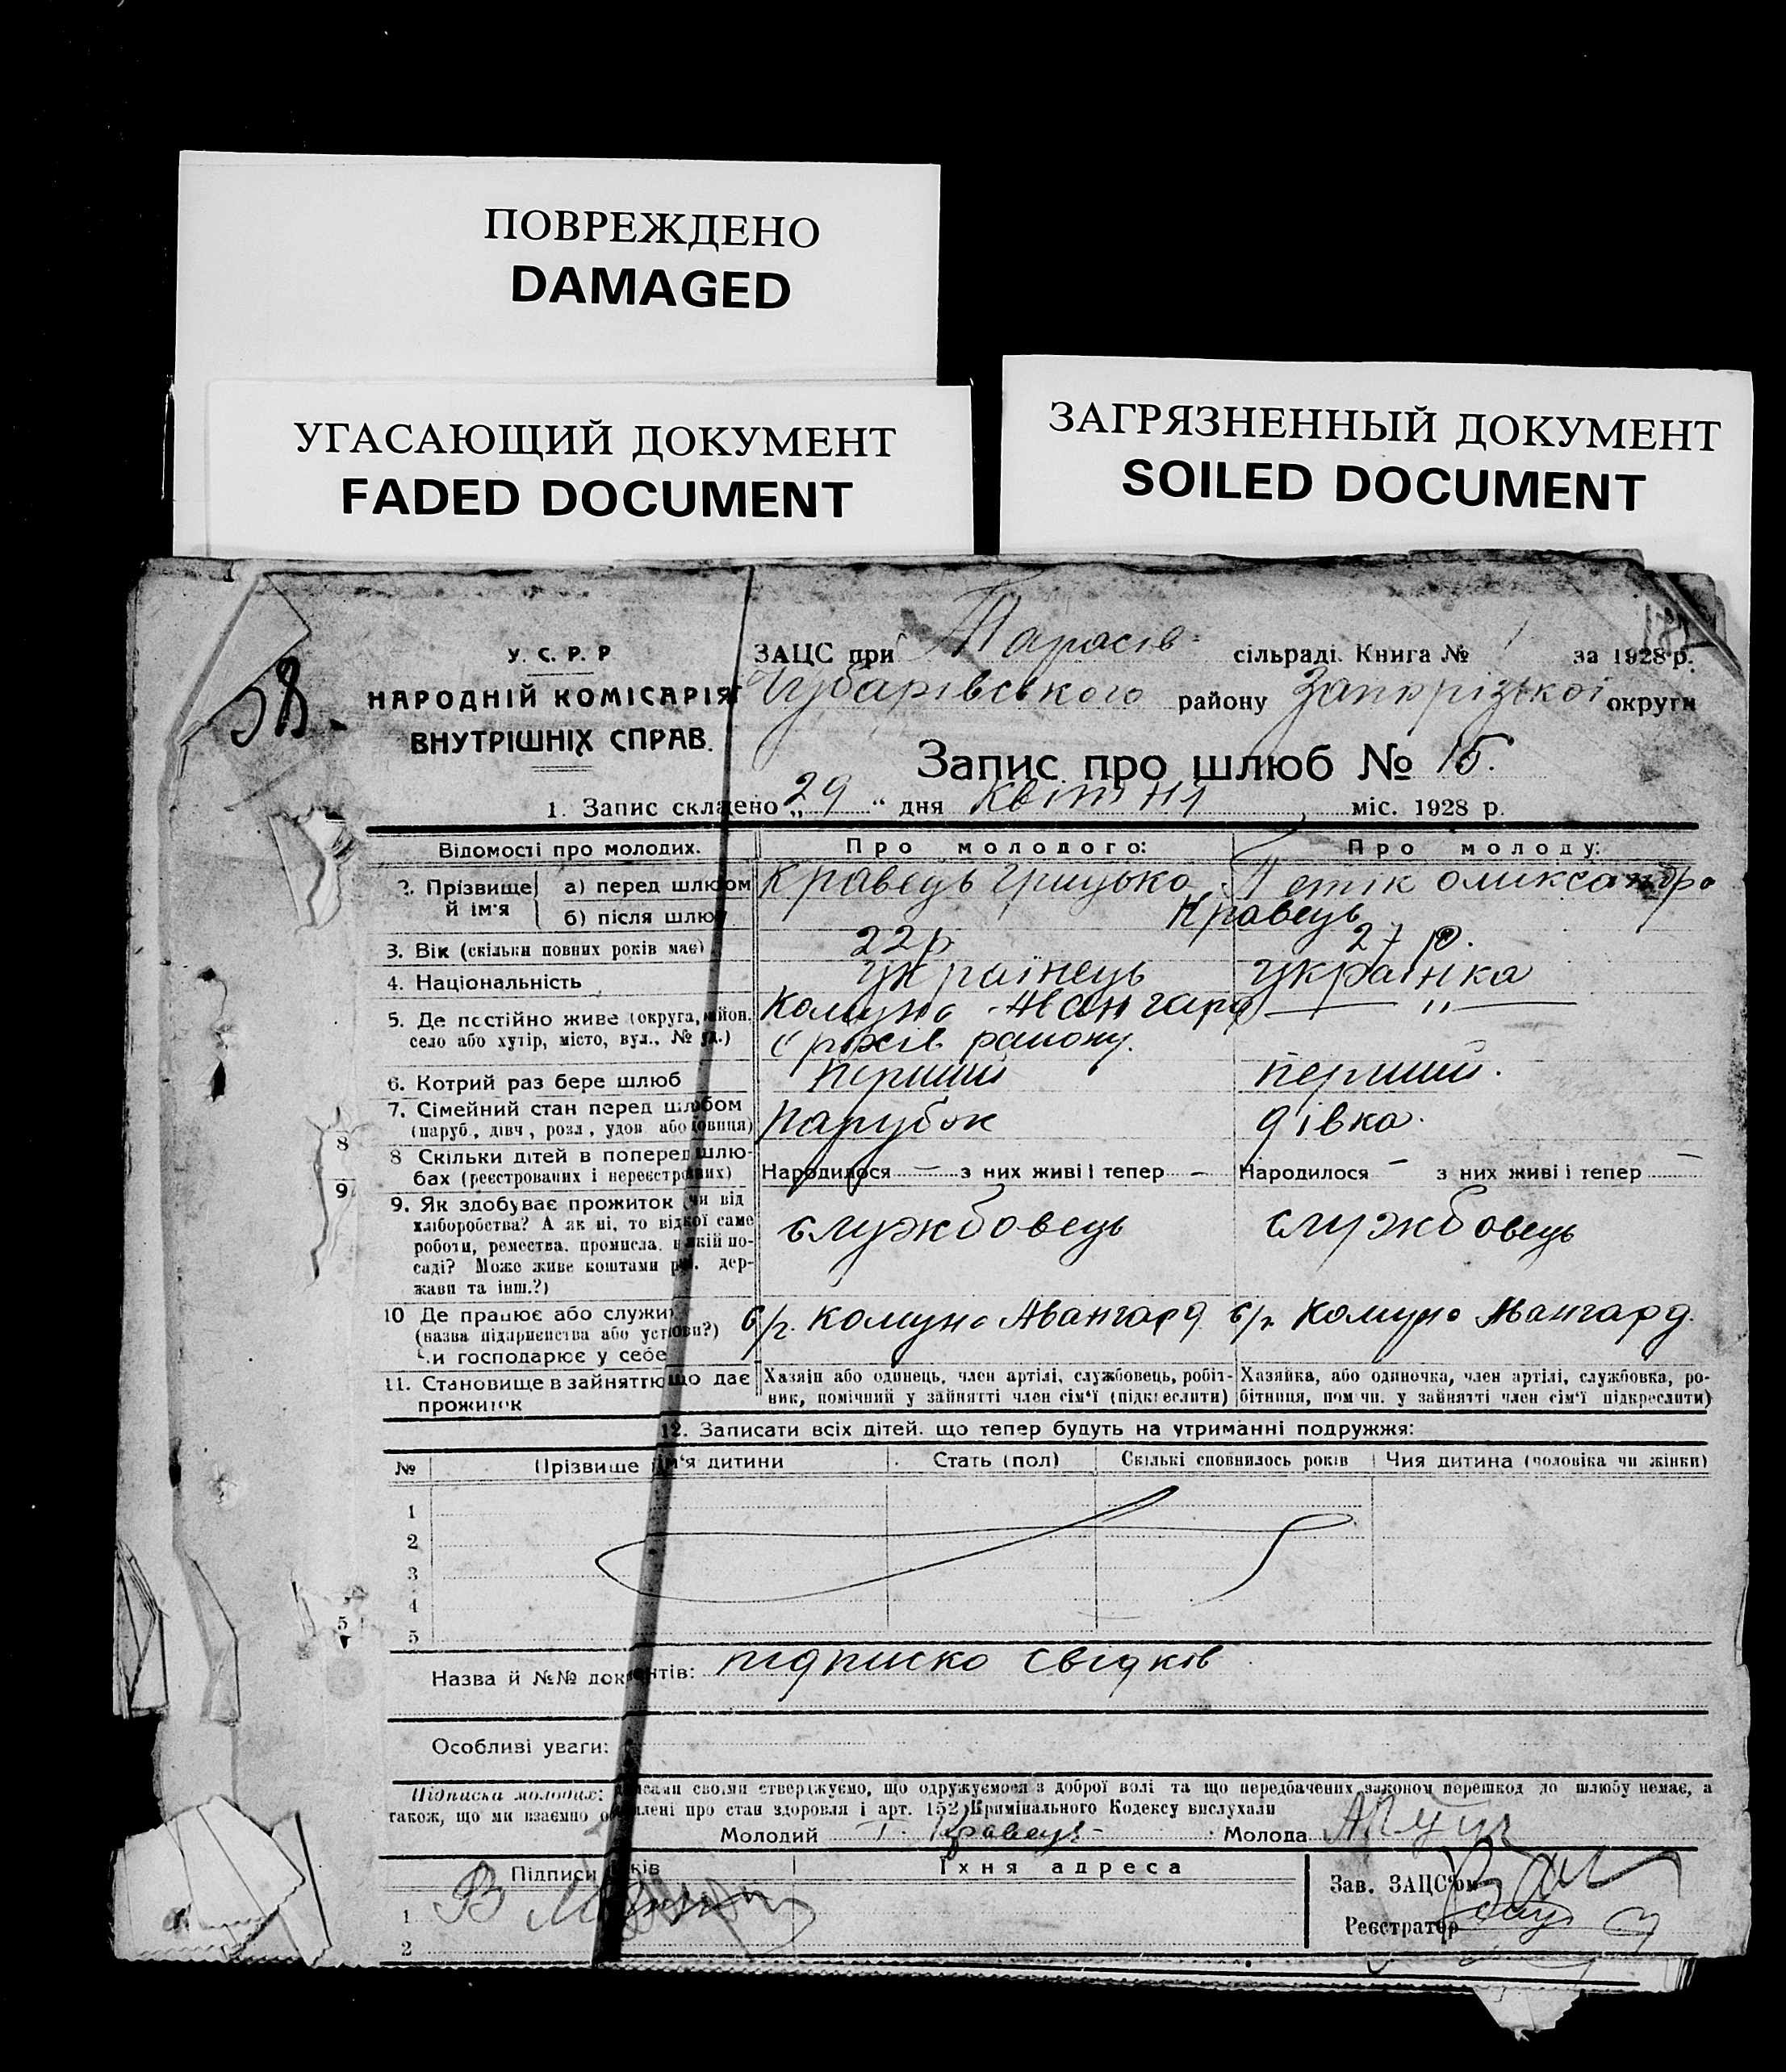 ПОВРЕЖДЕНО
DAMAGED
УГАСАЮЩИЙ ДОКУМЕНТ
FADED DOCUMENT
ЗАГРЯЗНЕННЫЙ ДОКУМЕНТ
SOILED DOCUMENT
У. С. Р. Р
НАРОДНІЙ КОМІСАРІЯТ
ВНУТРІШНІХ СПРАВ.
58.
ЗАЦС при Тарасів- сільраді. Книга № 1 за 1928 р.
Чубарівського району Запорізької округи
Запис про шлюб № 15.
1. Запис складено „29“ дня квітня міс. 1928 р.
Відомості про молодих. Про молодого: Про молоду:
2. Прізвище й ім'я а) перед шлюбом Кравець Грицько Петік оликсандра
б) після шлюбу Кравець
3. Вік (скільки повних років має) 22 р. 27 р.
4. Національність українець українка
5. Де постійно живе (округа, район, Комуна Авангард — „ —
село або хутір, місто, вул., № буд.) Оріхів району.
6. Котрий раз бере шлюб перший перший.
7. Сімейний стан перед шлюбом парубок дівка.
(паруб., дівч., розл., удов. або удовиця)
8 Скільки дітей в поперед. шлю-
бах (реєстрованих і нереєстрованих) Народилося — з них живі і тепер — Народилося — з них живі і тепер —
9. Як здобуває прожиток (чи від
хліборобства? А як ні, то від якої саме службовець службовець
роботи, ремества, промисла, на якій по-
саді? Може живе коштами рід. дер-
жави та інш.?)
10 Де працює або служить с/г. Комуна Авангард с/г. Комуна Авангард.
(назва підприємства або установи?)
чи господарює у себе
11. Становище в зайняттю що дає Хазяін або одинець, член артілі, службовець, робіт- Хазяйка, або одиночка, член артілі, службовка, ро-
прожиток ник, помічний у зайнятті член сім'ї (підкреслити) бітниця, пом чн. у зайнятті член сім'ї підкреслити)
12. Записати всіх дітей, що тепер будуть на утриманні подружжя:
№ Прізвище ім'я дитини Стать (пол) Скількі сповнилось років Чия дитина (чоловіка чи жінки)
1
2
3
4
5
8
9
5
Назва й №№ документів: підписка свідків
Особливі уваги:
Підписка молодих: підписами своіми стверджуємо, що одружуємося з доброї волі та що передбачених законом перешкод до шлюбу немає, а
також, що ми взаємно освідомлені про стан здоровля і арт. 152 Кримінального Кодексу вислухали
Молодий Г. Кравець Молода
Підписи свідків Їхня адреса Зав. ЗАЦС'ом
1 В
2
Реєстратор